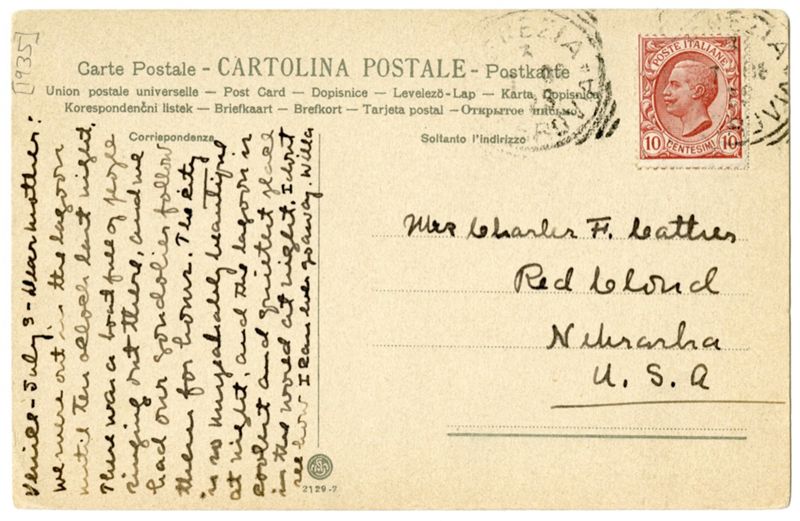 [1935]
Carte Postale - CARTOLINA POSTALE - Postkarte
Union postale universelle — Post Card — Dopisnice — Levelezö-Lap — Karta Dopisnica
Korespondenčni listek — Briefkaart — Brefkort — Tarjeta postal — Открытое письмо
Corrispondenza
Soltanto l'indirizzo
VENEZIA
VENEZIA
POSTE ITALIANE
10 CENTESIMI 10
Mrs Charles F. Cather
Red Cloud
Nebraska
U. S. A
Venice - July 3 - Dear Mother:
We were out in the lagoon
until ten oclock last night.
There was a boat full of people
singing out there, and we
had our gondolier follow
them for hours. The city
is so unspeakably beautiful
at night, and the lagoon is
coolest and quietest place
in the world at night. I dont
see how I can ever go away. Willa
2129-2